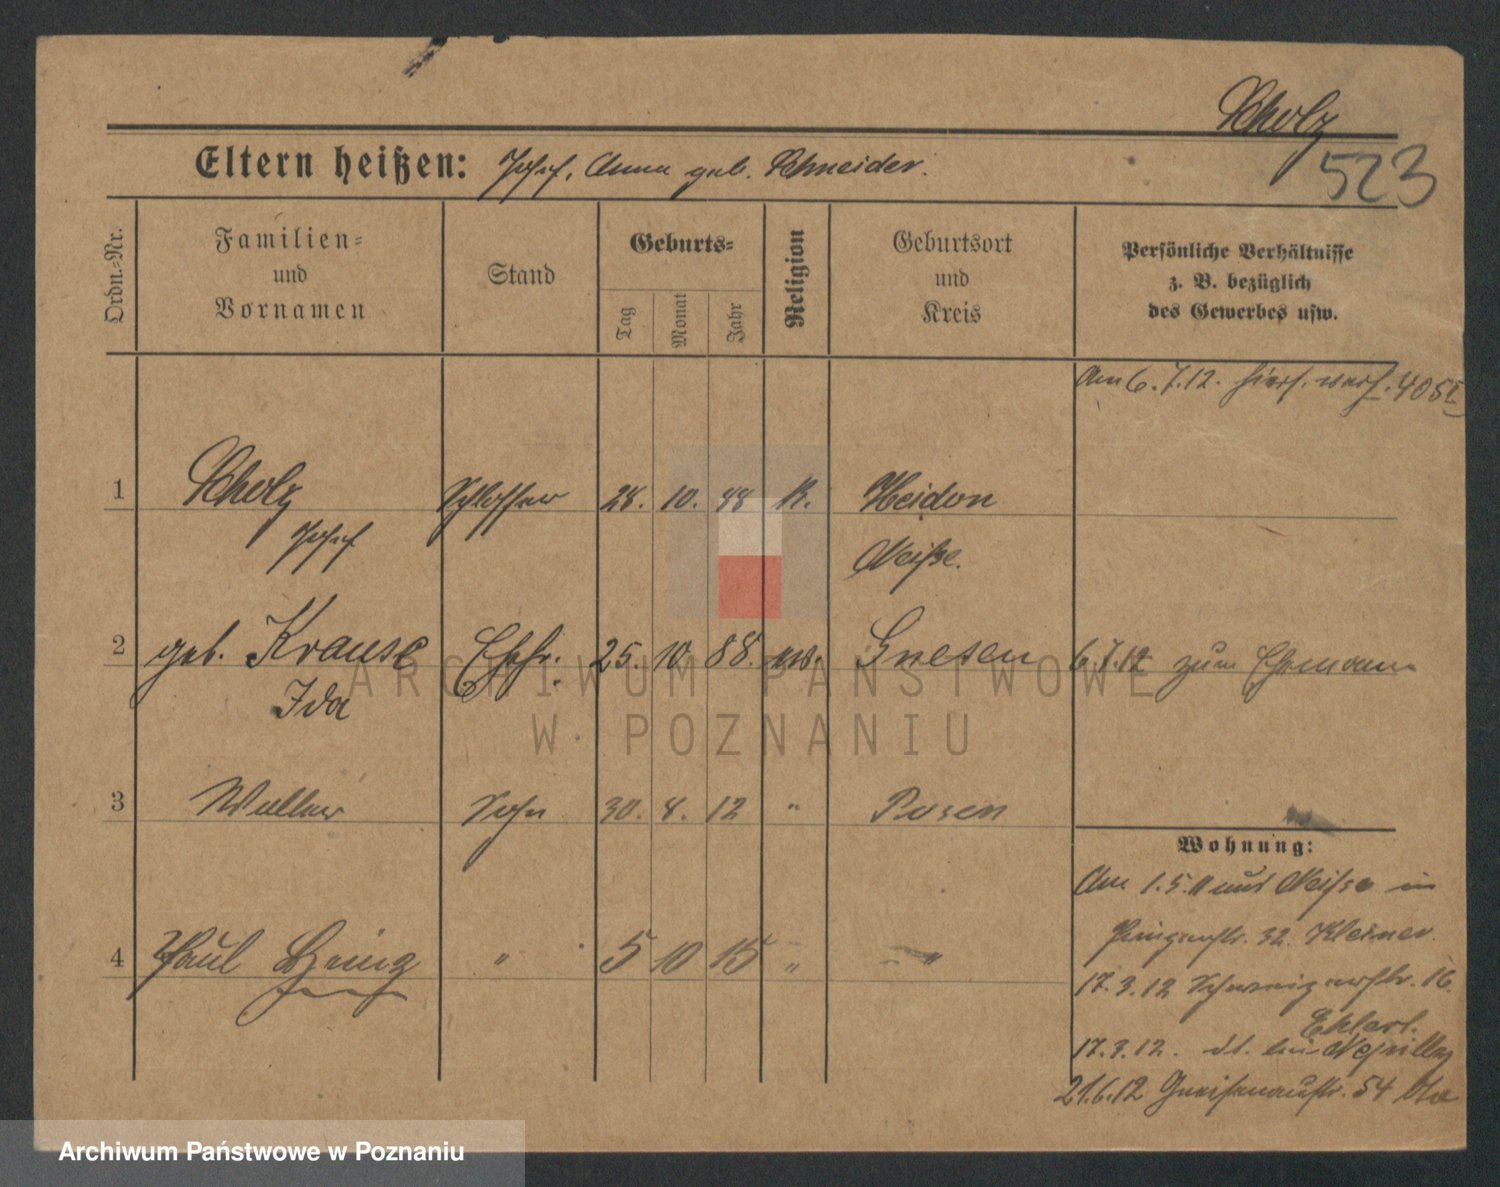 Scholz
523
Eltern heißen: Josef, Anna geb. Schneider.
Ordn.-Nr.
Familien- und Vornamen
Stand
Geburts-
Tag
Monat
Jahr
Religion
Geburtsort und Kreis
Persönliche Verhältnisse
z. B. bezüglich
des Gewerbes usw.
Am 6.7.12.
1 Scholz Schlosser 28. 10. 88 K. Heidon
Josef Neiße.
2 geb. Krause Ehefr. 25. 10. 88. Gnesen 6.7.12 zum Ehemann
Ida
3 Sohn 30. 8. 12 " Posen
4 Paul Heinz " 5 10 15 " "
Wohnung:
Am 1.5.11 aus Neisse in
32. Kleiner.
17.3.12 16.
Ehlert.
17.3.12. bei
21.6.12 Gneisenaustr. 54
ARCHIWUM PAŃSTWOWE
W POZNANIU
Archiwum Państwowe w Poznaniu